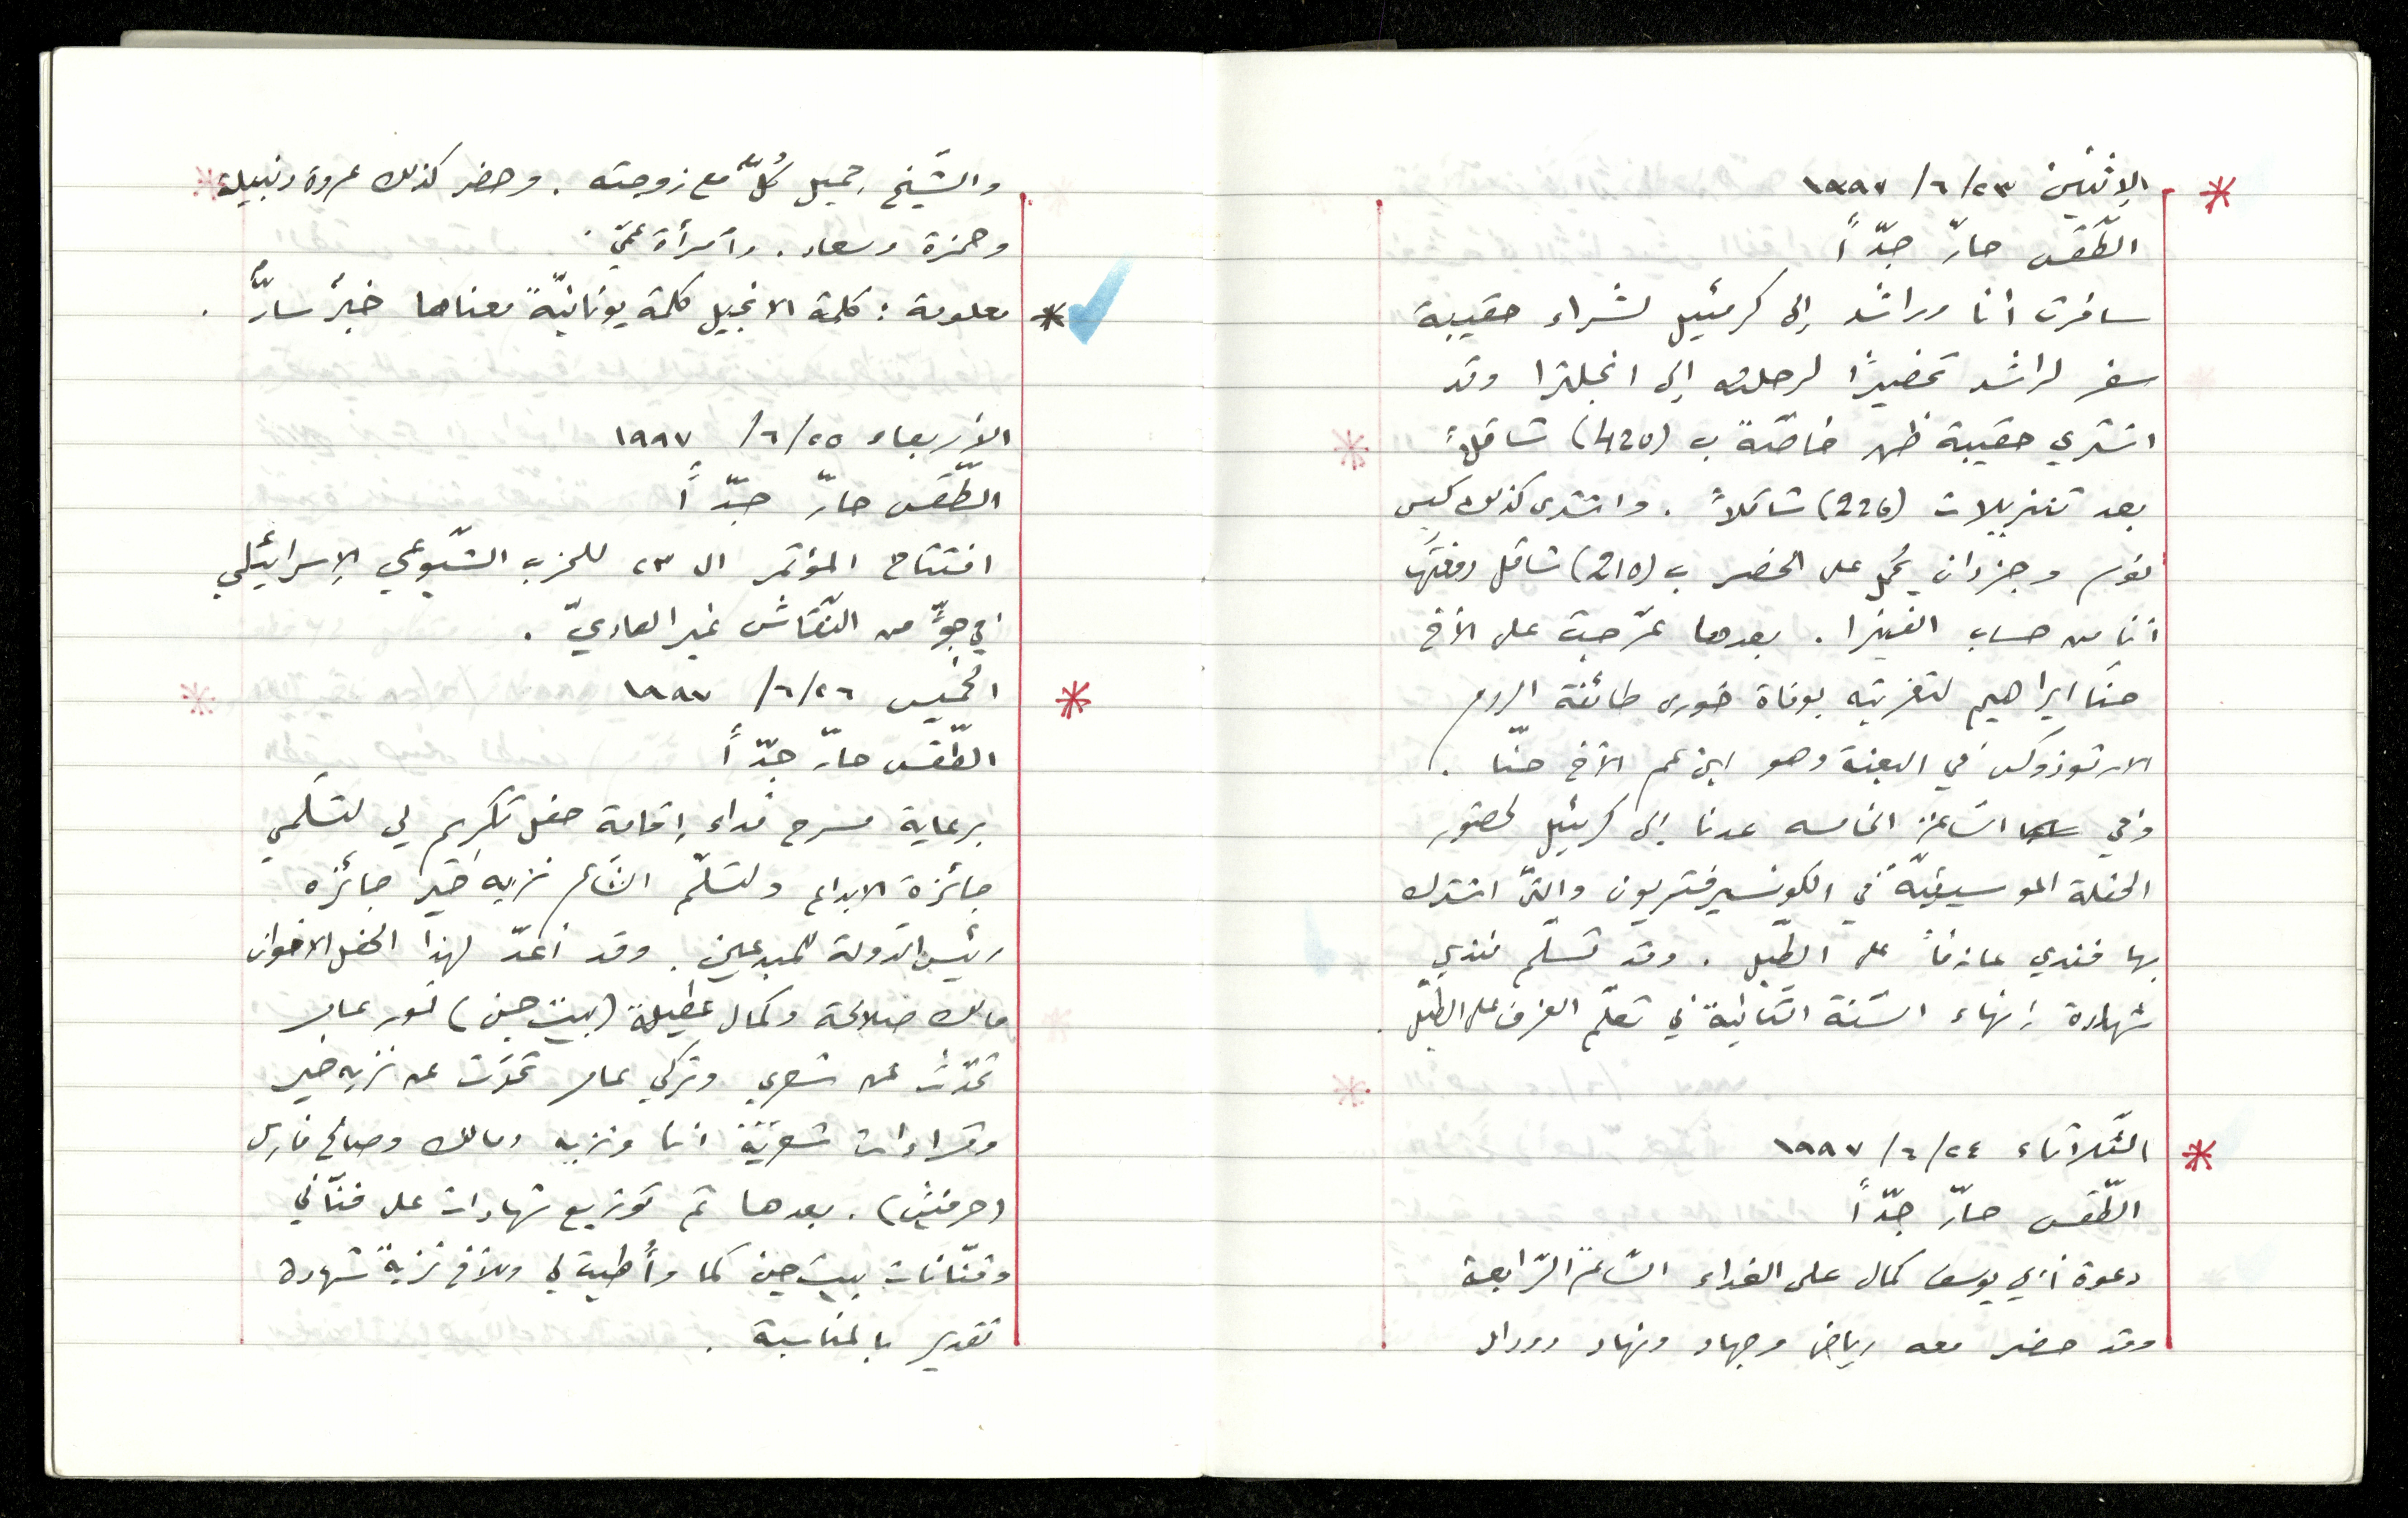 الإثنين ٢٣/ ٦/ ١٩٩٧
الطّقس حارّ جدّاً
سافرت أنا وراشد إلى كرمئيل لشراء حقيبة
سفر لراشد تحضيرًا لرحلته إلى انجلترا وقد
اشترى حقيبة ظهر خاصّة ب (420) شاقلاً
بعد تنزيلات (226) شاقلاً . واشترى كذلك كيس
نوم وجزدان يُحمل على الخصر ب (210) شاقل دفعتُها
أنا من حساب الفيزا . بعدها عرّجت على الأخ
حنّا ابراهيم لتعزيته بوفاة خوري طائفة الروم
الارثوذوكس في البعنة وهو ابن عم الأخ حنّا .
وفي السّاعة الخامسه عدنا إلى كرمئيل لحضور
الحفلة الموسيقيّة في الكونسيرفتريون والتي اشترك
بها فندي عازفاً على الطّبل . وقد تسلّم فندي
شهادة إنهاء السّنة الثّانية في تعلّم العزف على الطّبل .
الثّلاثاء ٢٤/ ٦/ ١٩٩٧
الطّقس حارّ جدّاً
دعوة يوسف كمال على الغداء السّاعة الرّابعة
وقد حضر معه رياض وجهاد ونهاد
والشّيخ جميل كُلّ مع زوجته . وحضر كذلك عروة ونبيلة
وحمزة وسعاد . وامرأة عمّي .
* معلومة : كلمة الانجيل كلمة يونانيّة معناها خبرٌ سارٌّ .
الأربعاء ٢٥/ ٦/ ١٩٩٧
الطّقس حارّ جدّاً
افتتاح المؤتمر ال ٢٣ للحزب الشّيوعي الإسرائيلي
في جوٍّ من النّقاش غير العاديّ .
الخميس ٢٦/ ٦/ ١٩٩٧
الطّقس حارّ جدّاً
برعاية مسرح فداء إقامة حفل تكريم لي لتسلّمي
جائزة الابداع ولتسلّم الشّاعر نزيه خير جائزة
رئيس الدّولة للمبدعين . وقد أعدّ لهذا الحفل الاخوان
مالك صلالحة وكمال عطيلة (بيت جن) نمر عامر
تحدّث عن شعري وتركي عامر تحدّث عن نزيه خير
وقراءات شعريّة أنا ونزيه ومالك وصالح فارس
(حرفيش) . بعدها تم توزيع شهادات على فنّاني
وفنّانات بيت جن كما وأُعطيت لي وللأخ نزيه شهادة
تقدير بالمناسبة .